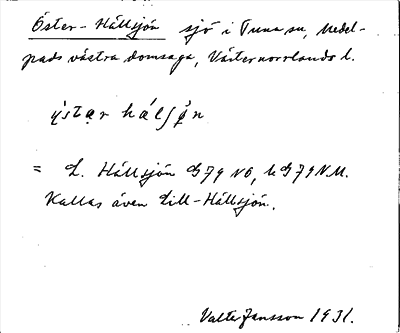 Öster-Hällsjön sjö i Tuna sn, Medel-
pads västra domsaga, Västernorrlands l.
= L. Hällsjön G79 NÖ, k G79 N.M.
Kallas även Lill-Hällsjön.
Valter Jansson 1931.